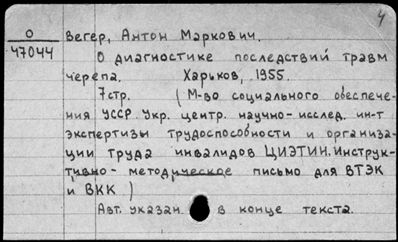 4
О
47044
Вегер, Антон Маркович.
О диагностике последствий травм
черепа. Харьков, 1955.
7стр. (М-во социального обеспече-
ния УССР. Укр. центр. научно-исслед. ин-т
экспертизы трудоспособности и организа-
ции труда инвалидов ЦИЭТИН. Инструк-
тивно-методическое письмо для ВТЭК
и ВКК)
Авт. указан в конце текста.